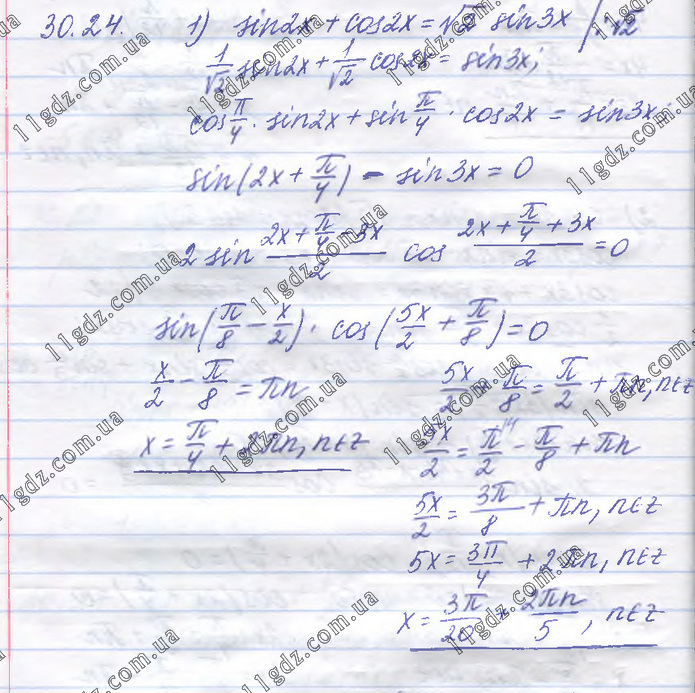 30.24. 1) sin2x + cos2x = √2 sin3x | :√2
1/√2 sin2x + 1/√2 cos2x = sin3x;
cos π/4 · sin2x + sin π/4 · cos2x = sin3x;
sin(2x + π/4) - sin3x = 0
2 sin (2x + π/4 - 3x)/2 cos (2x + π/4 + 3x)/2 = 0
sin(π/8 - x/2) · cos(5x/2 + π/8) = 0
x/2 - π/8 = πn
x = π/4 + 2πn, n∈z
5x/2 + π/8 = π/2 + πn, n∈z
5x/2 = π/2 - π/8 + πn
5x/2 = 3π/8 + πn, n∈z
5x = 3π/4 + 2πn, n∈z
x = 3π/20 + 2πn/5, n∈z
11gdz.com.ua
11gdz.com.ua
11gdz.com.ua
11gdz.com.ua
11gdz.com.ua
11gdz.com.ua
11gdz.com.ua
11gdz.com.ua
11gdz.com.ua
11gdz.com.ua
11gdz.com.ua
11gdz.com.ua